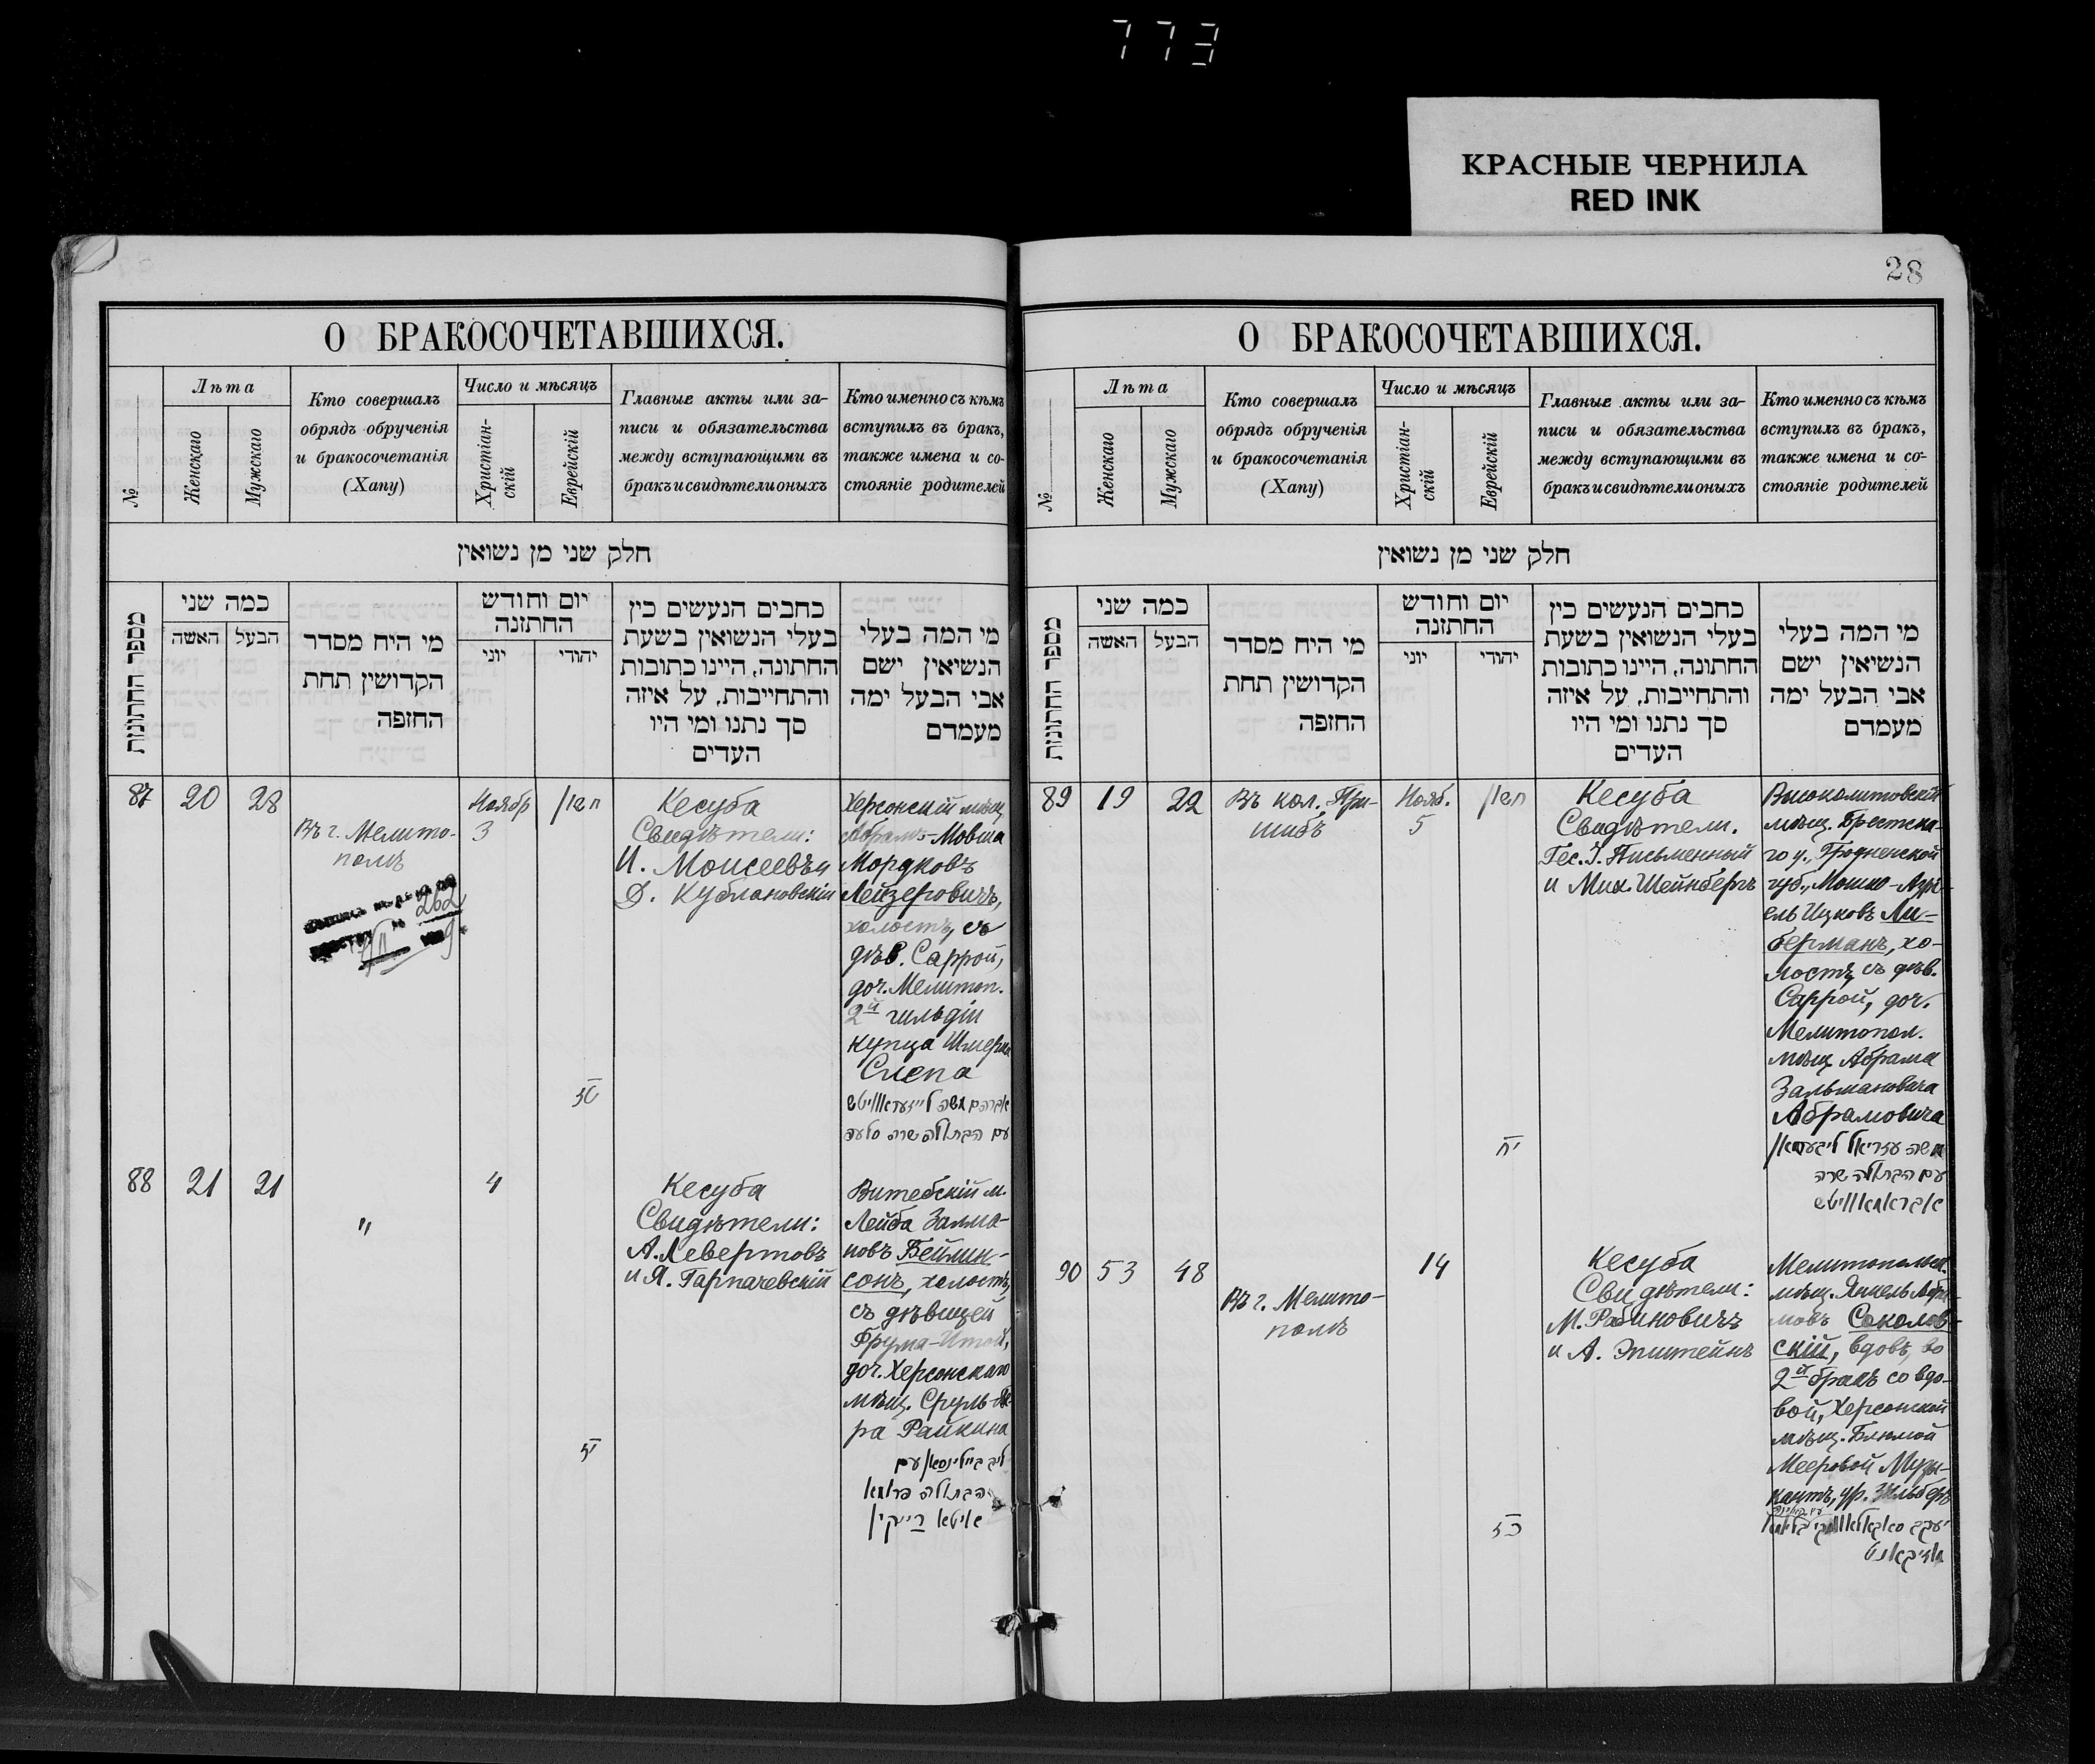 773
КРАСНЫЕ ЧЕРНИЛА
RED INK
О БРАКОСОЧЕТАВШИХСЯ.
№
Лѣта
Женскаго
Мужскаго
Кто совершалъ
обрядъ обрученія
и бракосочетанія
(Хапу)
Число и мѣсяцъ
Христіан-
скій
Еврейскій
Главные акты или за-
писи и обязательства
между вступающими въ
бракъ и свидѣтели оныхъ
Кто именно съ кѣмъ
вступилъ въ бракъ,
также имена и со-
стояніе родителей
חלק שני מן נשואין
מספר החתונות
כמה שני
האשה
הבעל
מי היח מסדר
הקדושין תחת
החזפה
יום וחודש
החתזנה
יוני
יהודי
כחבים הנעשים כין
בעלי הנשואין בשעת
החתונה, היינו כתובות
והתחייבות, על איזה
סך נתנו ומי היו
העדים
מי המה בעלי
הנשיאין ישם
אבי הבעל ימה
מעמדם
87
20
28
Въ г. Мелито-
полѣ
262
Ноябр
3
חשון
Кесуба
Свидѣтели:
И. Моисеевъ и
Д. Кублановскій
Херсонскій мѣщ.
Абрамъ-Мовша
Мордковъ
Лейзеровичъ,
холостъ, съ
дѣв. Саррой,
доч. Мелитоп.
2й гильдіи
купца Шмерка
Слепа
אברהם משה לייזעראוויטש
עם הבתולה שרה סלעפ
88
21
21
"
4
Кесуба
Свидѣтели:
А. Левертовъ
и Я. Гарпачевскій
Витебскій м.
Лейба Залма-
новъ Бейлин-
сонъ, холостъ,
съ дѣвицей
Фрума-Итой,
доч. Херсонскаго
мѣщ. Сруль-
ра Райкина
ליב ביילינסאן עם
הבתולה פרומא
איטא רייקין
28
О БРАКОСОЧЕТАВШИХСЯ.
№
Лѣта
Женскаго
Мужскаго
Кто совершалъ
обрядъ обрученія
и бракосочетанія
(Хапу)
Число и мѣсяцъ
Христіан-
скій
Еврейскій
Главные акты или за-
писи и обязательства
между вступающими въ
бракъ и свидѣтели оныхъ
Кто именно съ кѣмъ
вступилъ въ бракъ,
также имена и со-
стояніе родителей
חלק שני מן נשואין
מספר החתונות
כמה שני
האשה
הבעל
מי היח מסדר
הקדושין תחת
החזפה
יום וחודש
החתזנה
יוני
יהודי
כחבים הנעשים כין
בעלי הנשואין בשעת
החתונה, היינו כתובות
והתחייבות, על איזה
סך נתנו ומי היו
העדים
מי המה בעלי
הנשיאין ישם
אבי הבעל ימה
מעמדם
89
19
22
Въ кол. При-
шибъ
Нояб.
5
חשון
יח
Кесуба
Свидѣтели.
Гес. І. Письменный
и Мих. Шейнбергъ
Высоколитовскій
мѣщ. Брестска-
го у., Гродненской
губ., Мошко-Азрі-
ель Ицковъ Ли-
берманъ, хо-
лостъ, съ дѣв.
Саррой, доч.
Мелитопол.
мѣщ. Абрама
Зальмановича
Абрамовича
משה עזריאל ליבערמאן
עם הבתולה שרה
אבראמאוויטש
90
53
48
Въ г. Мелито-
полѣ
14
כז
Кесуба
Свидѣтели:
М. Рабиновичъ
и А. Эпштейнъ
Мелитопольск.
мѣщ. Янкель Абра-
мовъ Соколов-
скій, вдовъ, во
2й бракъ со вдо-
вой, Херсонской
мѣщ. Блюмой
Мееровой Музы-
кантъ, ур. Зильберъ